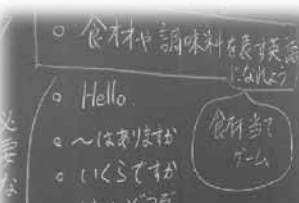 食材や調味料を表す英語
になれよう
Hello
～はありますか
いくらですか
食材当て
ゲーム
必要な